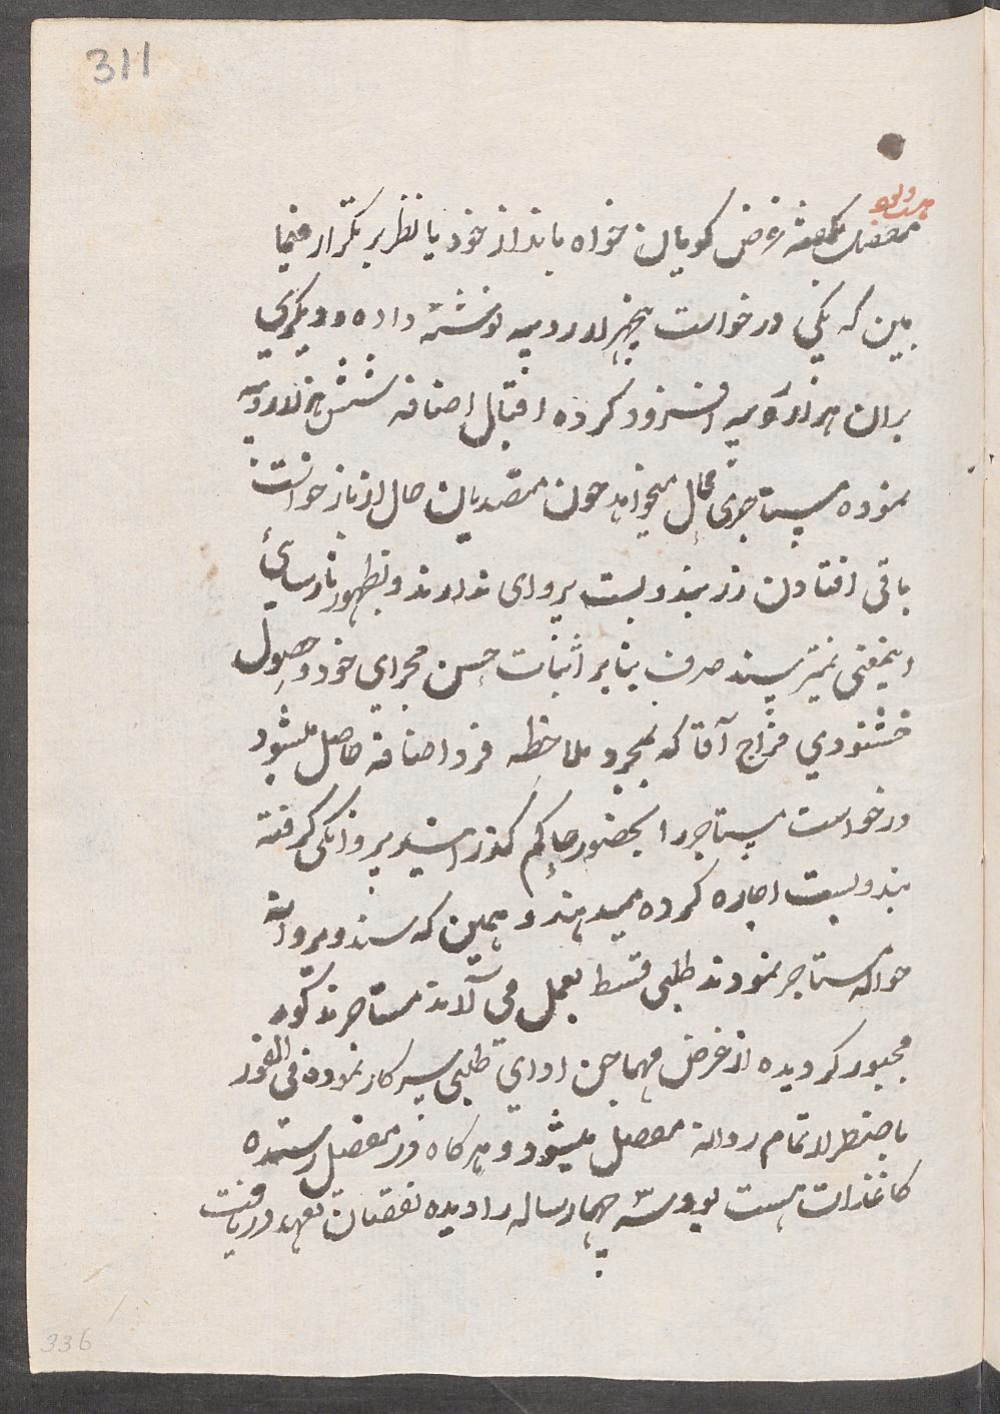 311
بمفصل بعضه غرض کویان خواه بانداز خود یا نظر بر تکرار فیما
بین که یکی درخواست پنجهزار روپیه نوشته داده و دیکری
بران هزار روپیه افزود کرده اقبال اضافه شش هزار روپیه
نموده مستاجری محال میخواهد چون متصدیان حال از بازخواست
باقی افتادن زر بندوبست پروای ندارند و بظهور نارسائی
اینمعنی نمیترسند صرف بنابر اثبات حسن مجرای خود و حصول
خشنودی مزاج آقا که بمجرد ملاحظه فرد اضافه حاصل میشود
درخواست مستاجر را بحضور حاکم کذرانیده پروانکی کرفته
بندوبست اجاره کرده میدهند و همین که سند و پروانه
حواله مستاجر نمودند طلبی قسط بعمل می آرند مستاجر مذکور
مجبور کردیده از قرض مهاجن ادای طلبی سرکار نموده فی الفور
باضطرار تمام روانه مفصل میشود و هرکاه در مفصل رسیده
کاغذات هست و بود سه چهار ساله را دیده نقصان تعهد دریافت
336